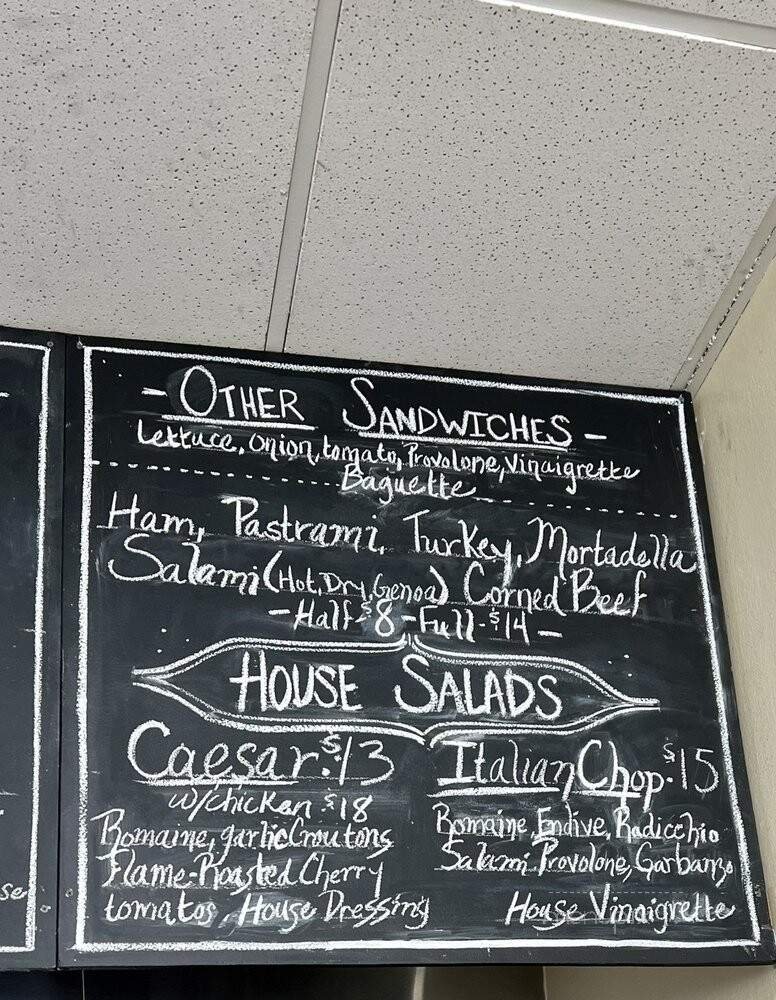 - OTHER SANDWICHES -
Lettuce, onion, tomato, Provolone, Vinaigrette
Baguette
Ham, Pastrami, Turkey, Mortadella
Salami (Hot, Dry, Genoa) Corned Beef
- Half - $8 - Full - $14 -
HOUSE SALADS
Caesar. $13
w/chicken. $18
Romaine, garlic Croutons
Flame-Roasted Cherry
tomatos, House Dressing
Italian Chop. $15
Romaine, Endive, Radicchio
Salami, Provolone, Garbanzo
House Vinaigrette
se